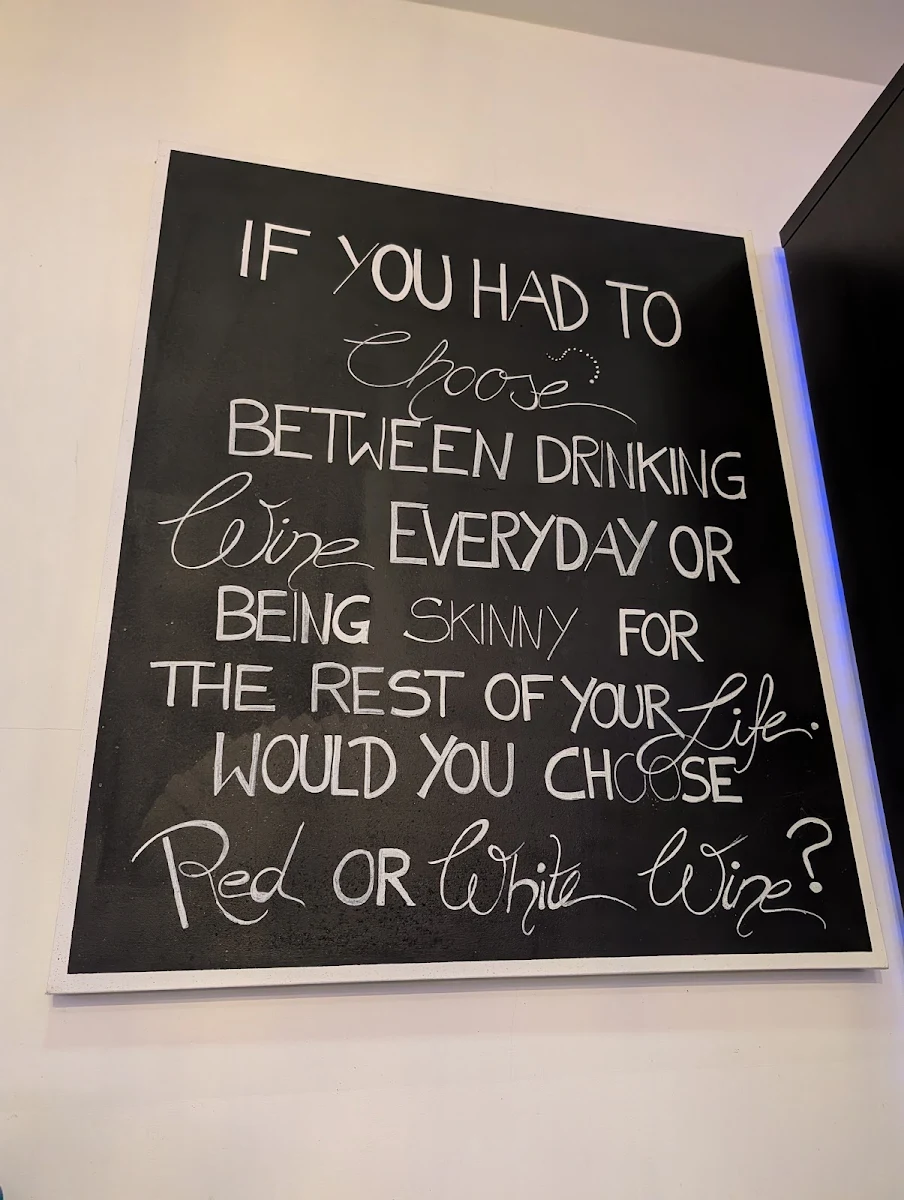 IF YOU HAD TO
Choose
BETWEEN DRINKING
Wine EVERYDAY OR
BEING SKINNY FOR
THE REST OF YOUR Life.
WOULD YOU CHOOSE
Red OR White Wine?